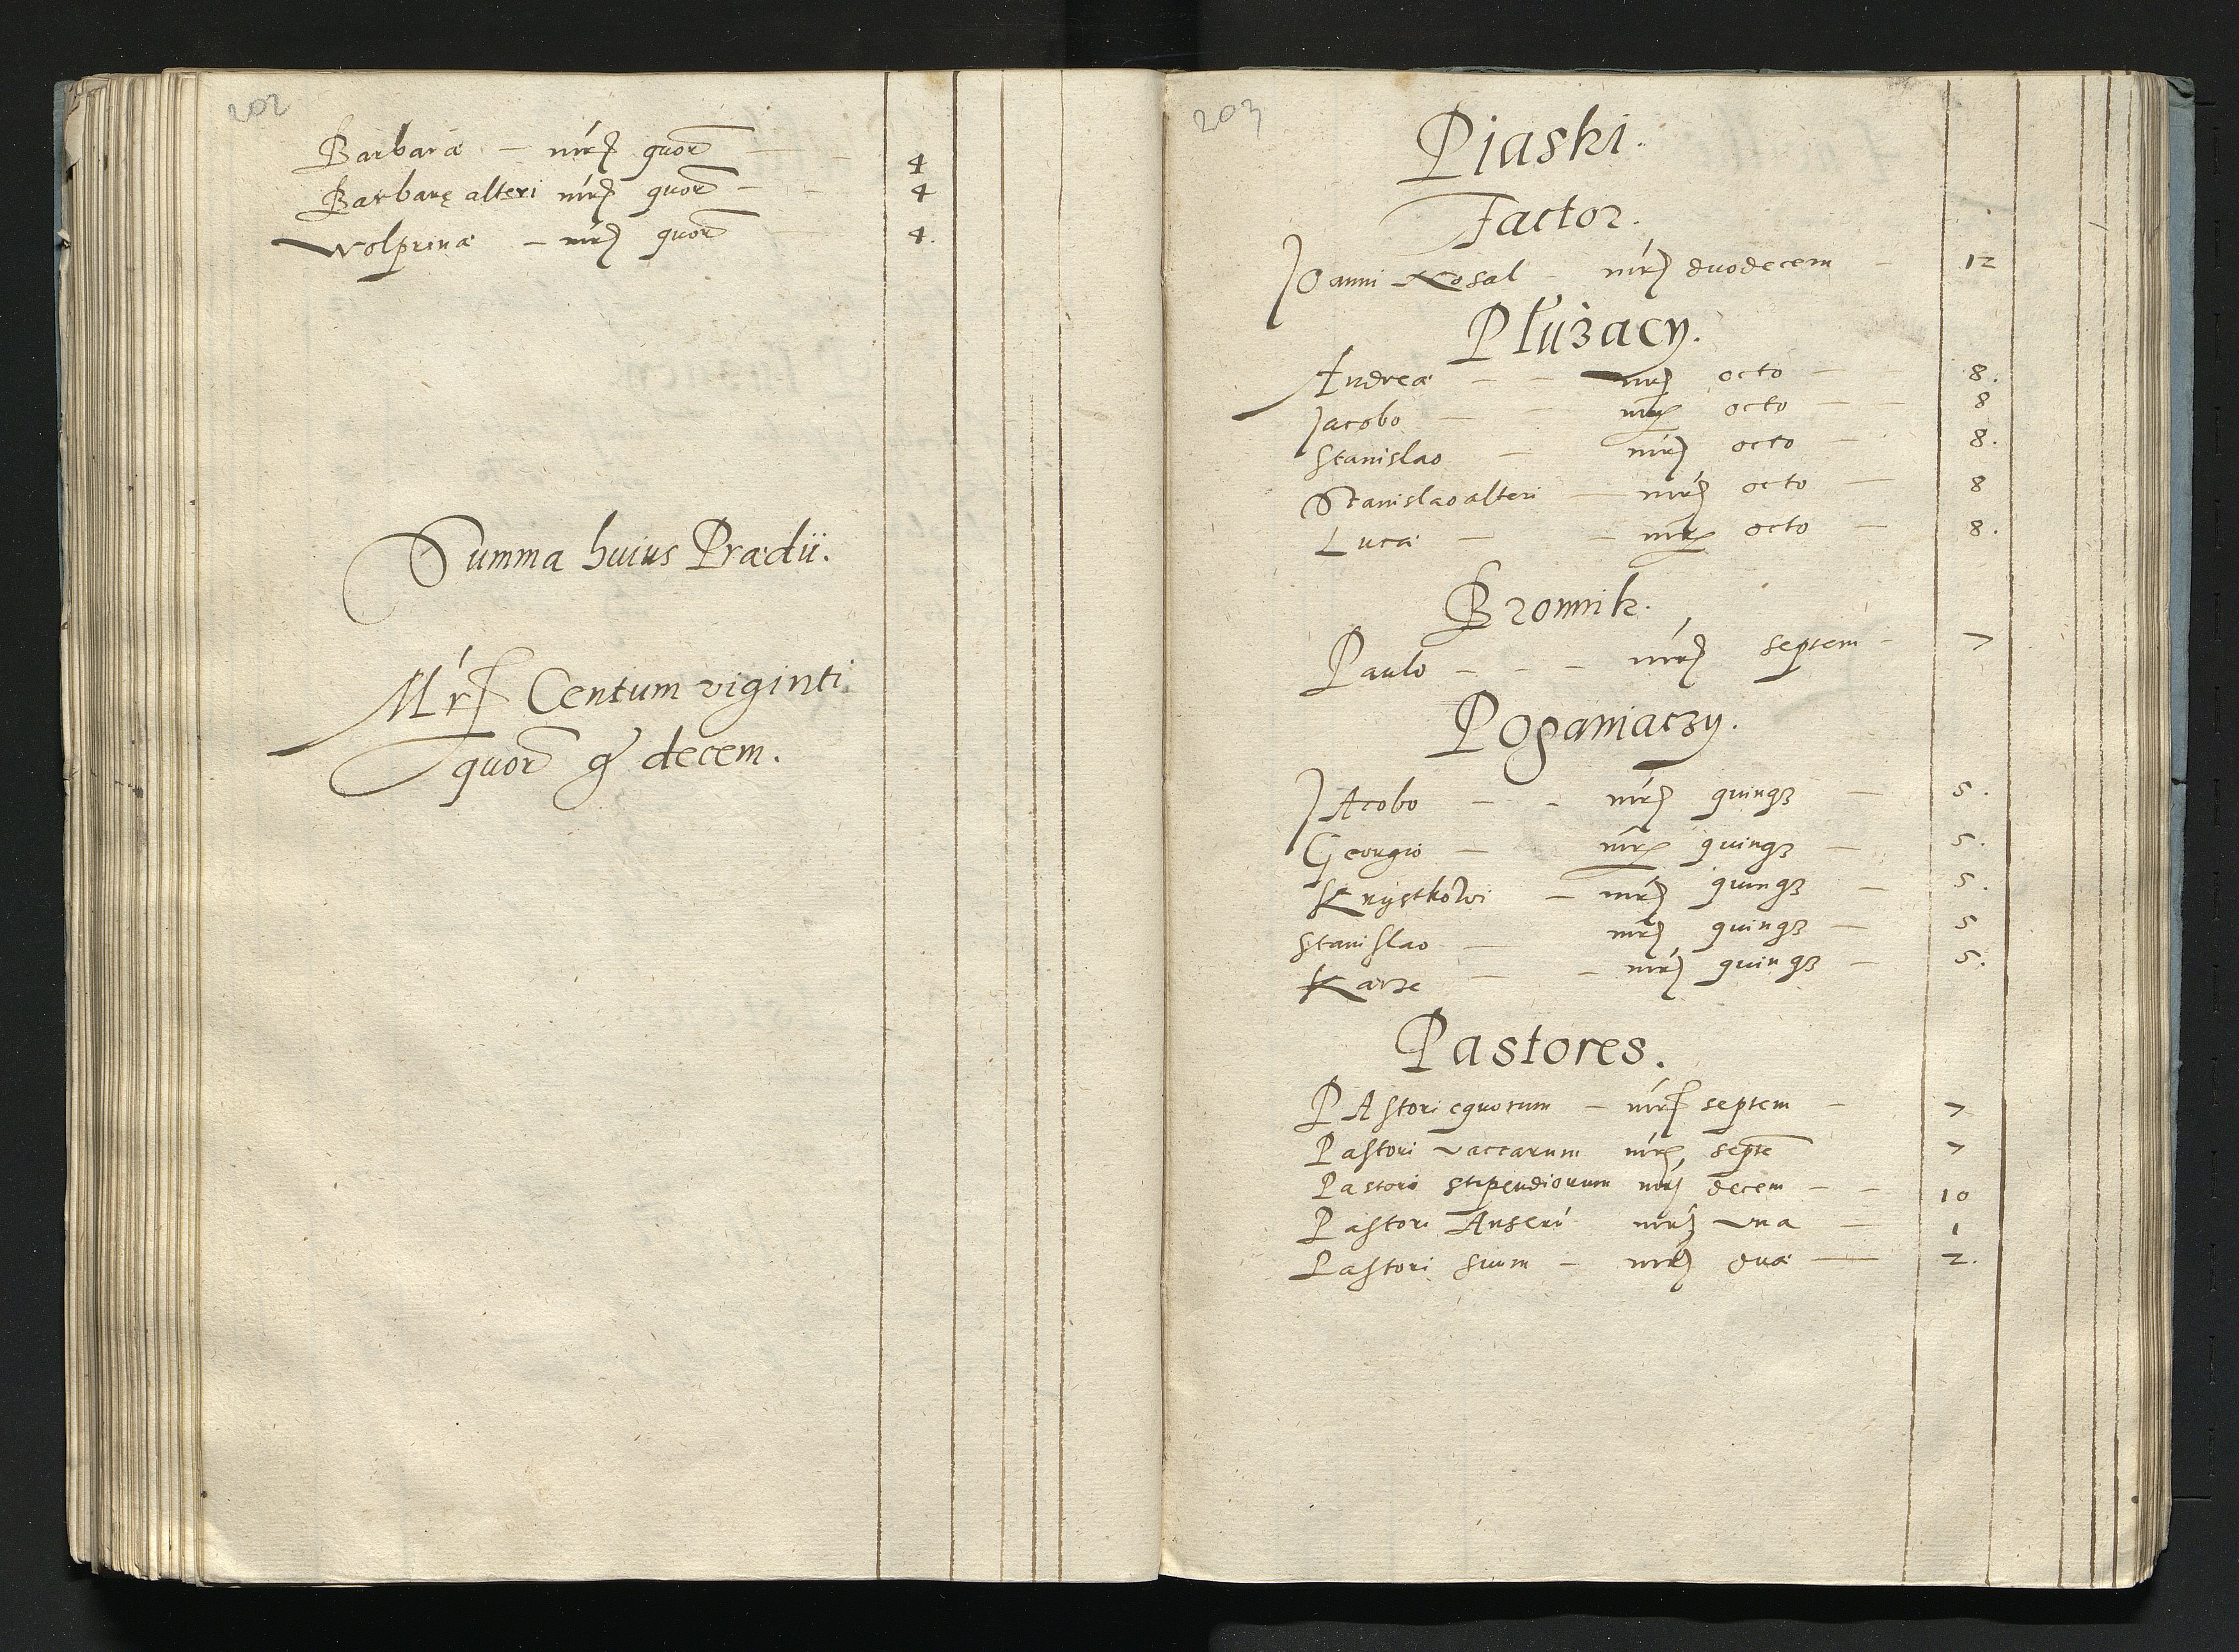 202
Barbaræ — mrḉ quor — 4
Barbarę alteri mrḉ quor — 4
Wolprinæ — mrḉ quor — 4.
Summa huius Prædii.
Mrḉ Centum viginti
quor g decem.
203
Piaski.
Factor.
Joanni Nosal — mrḉ duodecem — 12
Płużacy.
Andreæ — — mrḉ octo — 8.
Jacobo — — mrḉ octo — 8
Stanislao — mrḉ octo — 8.
Stanislao alteri — mrḉ octo — 8
Lucæ — — mrḉ octo — 8.
Bronnik.
Paulo — — — mrḉ septem — 7
Poganiaczy.
JAcobo — — mrḉ quinqȝ — 5.
Georgio — mrḉ quinqȝ — 5.
Krystkowi — mrḉ quinqȝ — 5.
Stanislao — mrḉ quinqȝ — 5
— — mrḉ quinqȝ — 5.
Pastores.
PAstori equorum — mrḉ septem — 7
Pastori vaccarum mrḉ septē 7
Pastori stipendiorum mrḉ decem — — 10
Pastori Anserú mrḉ una — 1
Pastori suum — mrḉ duæ — 2.